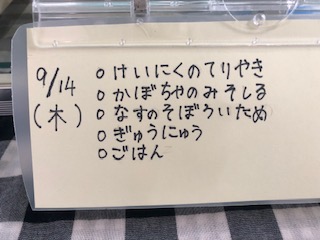 9/14
(木)
○けいにくのてりやき
○かぼちゃのみそしる
○なすのそぼろいため
○ぎゅうにゅう
○ごはん